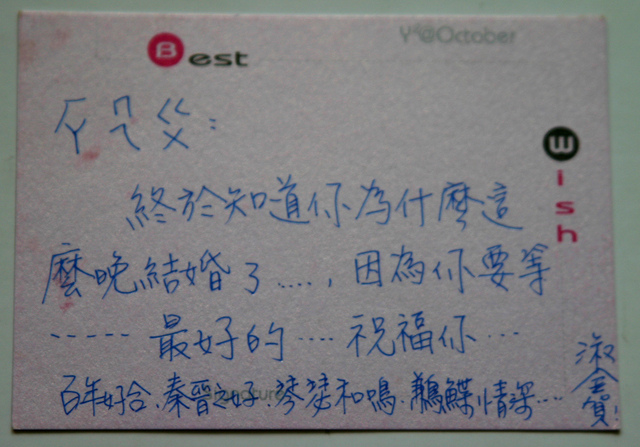 Best
ㄏㄚ ㄇㄟ ㄍㄨ:
Wish
終於知道你為什麼這
麼晚結婚了....,因為你要等
-----最好的....祝福你...
百年好合.秦晉之好.琴瑟和鳴.鶼鰈情深...
淑